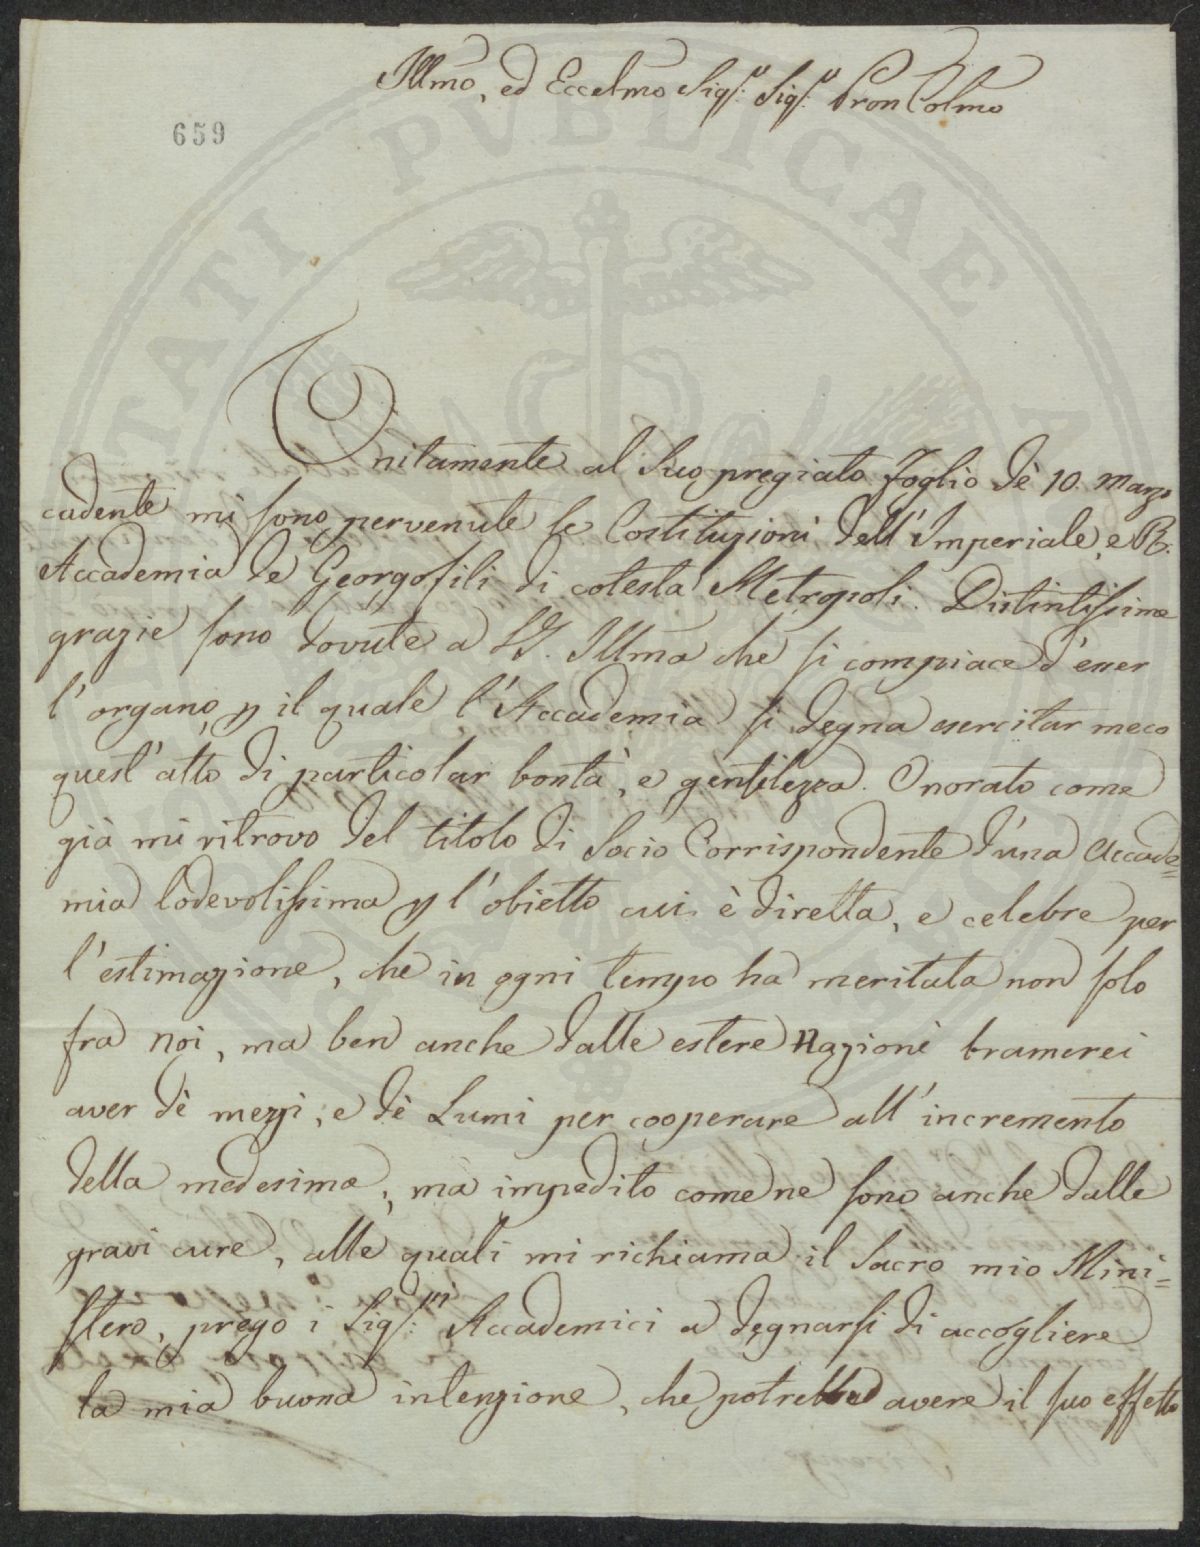 Illmo, ed Eccelmo Sigr: Sigr: Pron Colmo
659
PVBLICAE
Unitamente al Suo pregiato Foglio dè 10. Marzo
cadente mi sono pervenute le Costituzioni dell'Imperiale, e R:
Accademia de' Georgofili di cotesta Metropoli. Distintissime
grazie sono dovute a V.S. Illma che si compiace d'esser
l'organo, p il quale l'Accademia si degna esercitar meco
quest'atto di particolar bontà, e gentilezza. Onorato come
già mi ritrovo del titolo di Socio Corrispondente d'una Accade=
mia lodevolissima p l'obietto cui è diretta, e celebre per
l'estimazione, che in ogni tempo ha meritata non solo
fra noi, ma ben anche dalle estere Nazioni bramerei
aver dè mezzi, e dè Lumi per cooperare all'incremento
della medesima, ma impedito come ne sono anche dalle
gravi cure, alle quali mi richiama il Sacro mio Mini=
stero, prego i Sigri: Accademici a degnarsi di accogliere
la mia buona intenzione, che potrebbe avere il suo effetto